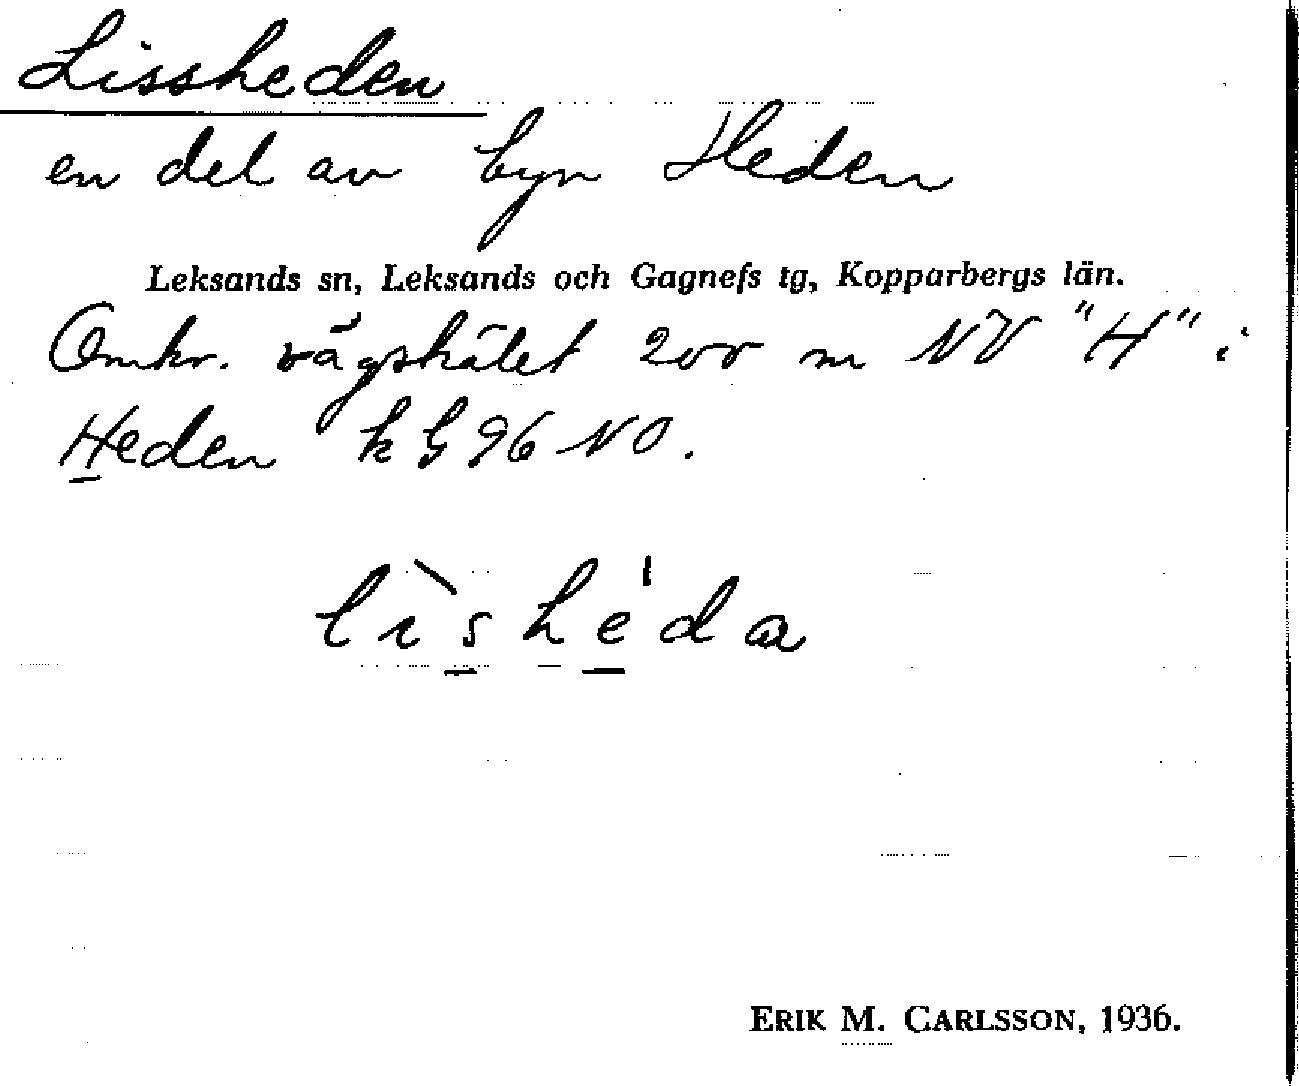 Lissheden
en del av byn Heden
Leksands sn, Leksands och Gagnefs tg, Kopparbergs län.
Omkr. vägskälet 200 m NV "H" i
Heden k G 96 NO.
lìshéda
ERIK M. CARLSSON, 1936.